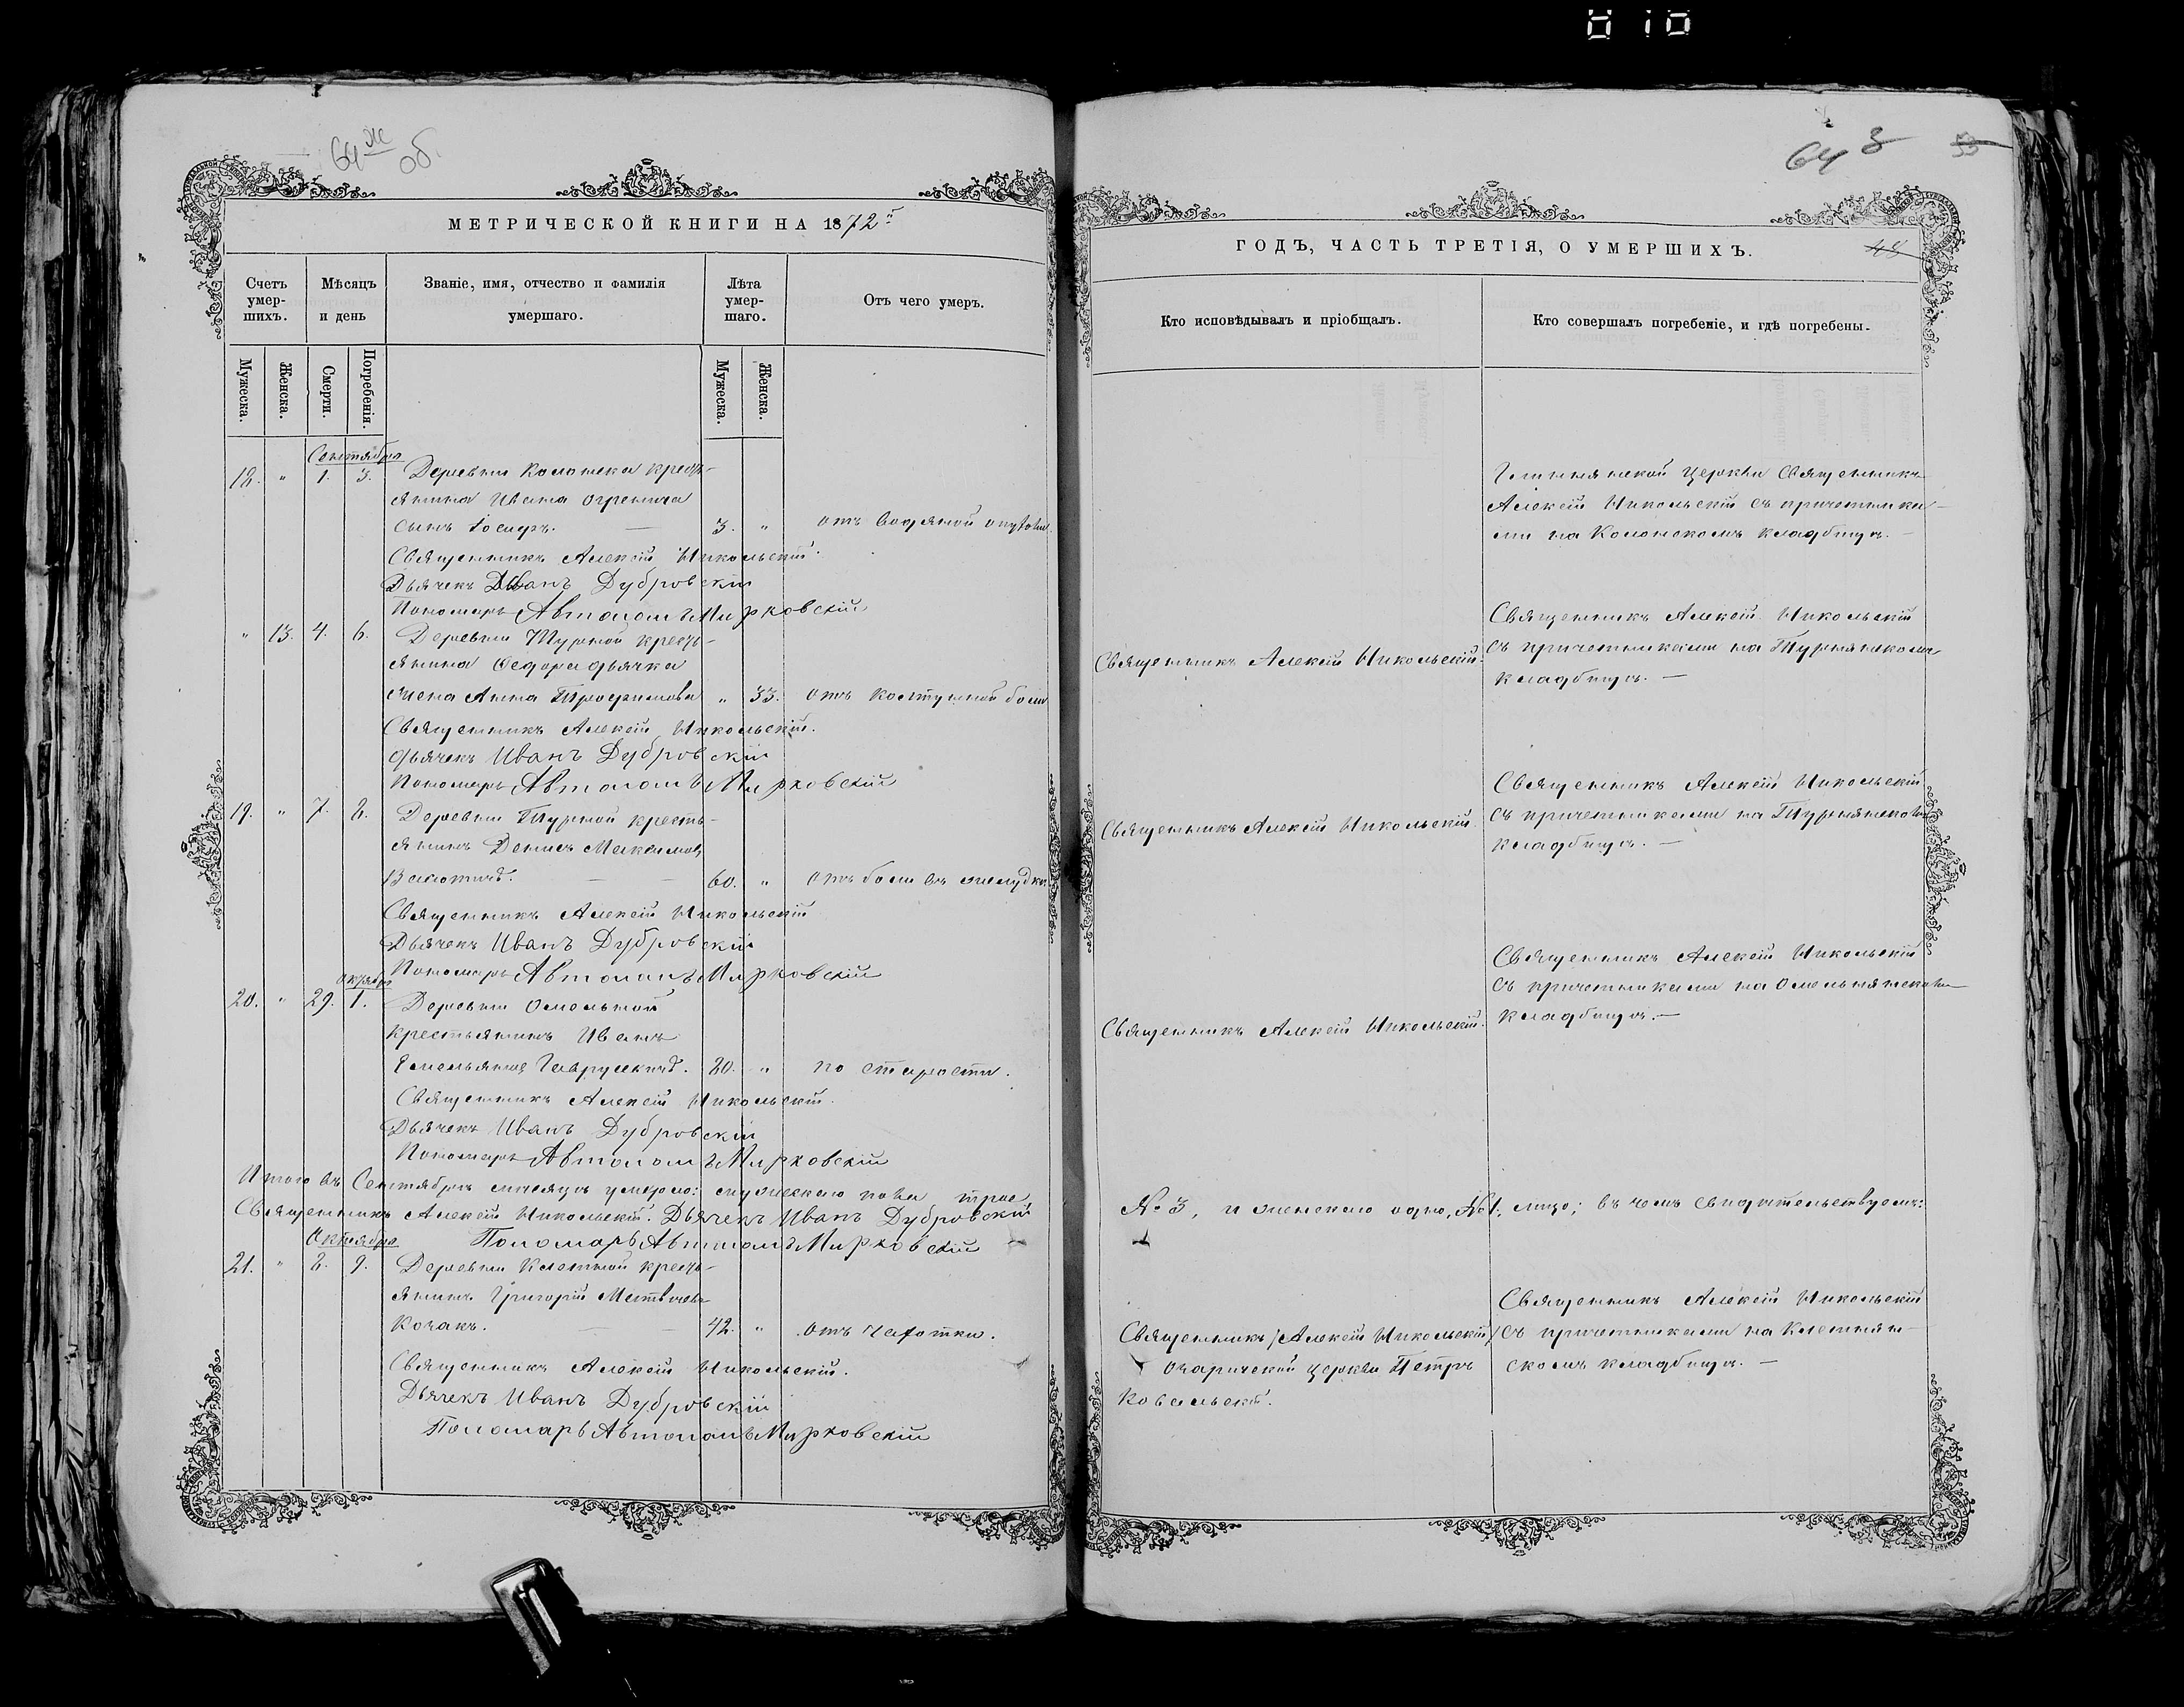 010
64 об.
64 3
53
МЕТРИЧЕСКОЙ КНИГИ НА 1872й
ГОДЪ, ЧАСТЬ ТРЕТІЯ, О УМЕРШИХЪ.
Счетъ умер-шихъ.
Мѣсяцъ и день
Званіе, имя, отчество и фамилія умершаго.
Лѣта умер-шаго.
Отъ чего умеръ.
Кто исповѣдывалъ и пріобщалъ.
Кто совершалъ погребеніе, и гдѣ погребены.
Мужеска.
Женска.
Смерти.
Погребенія.
Мужеска.
Женска.
Сентября
18. " 1. 3. Деревни Колонска кресть-
янина Ивана
сынъ Іосифъ. — 3. " отъ водяной опухоли
Священникъ Алексій Никольскій.
Дьячекъ Иванъ Дубровскій
Пономарь Автономъ Мирковскій
церкви Священникъ
Алексій Никольскій съ причетника-
ми на Колонскомъ кладбищѣ. —
" 13. 4. 6. Деревни Турной кресть-
янина Ѳедора Дьячка
жена Анна Трофимова " 33. отъ колтунной боли
Священникъ Алексій Никольскій.
Дьячекъ Иванъ Дубровскій
Пономарь Автономъ Мирковскій
Священникъ Алексій Никольскій.
Священникъ Алексій Никольскій
съ причетниками на Турнянскомъ
кладбищѣ. —
19. " 7. 8. Деревни Турной кресть-
янинъ Денисъ Максимовъ
— — 60. " отъ боли въ желудкѣ.
Священникъ Алексій Никольскій
Дьячекъ Иванъ Дубровскій
Пономарь Автономъ Мирковскій
Священникъ Алексій Никольскій.
Священникъ Алексій Никольскій
съ причетниками на Турнянскомъ
кладбищѣ. —
Октября
20. " 29. 1. Деревни Омельной
крестьянинъ Иванъ
Емельяновъ Гаврусикъ. 80. " по старости.
Священникъ Алексій Никольскій.
Дьячекъ Иванъ Дубровскій
Пономарь Автономъ Мирковскій
Священникъ Алексій Никольскій.
Священникъ Алексій Никольскій
съ причетниками на Омельнянскомъ
кладбищѣ. —
Итого въ Сентябрѣ мѣсяцѣ умерло: мужескаго пола трое
№ 3, и женскаго одно, № 1, лицо; въ чемъ свидѣтельствуемъ:
Священникъ Алексій Никольскій. Дьячекъ Иванъ Дубровскій
Пономарь Автономъ Мирковскій
Октября
21. " 8. 9. Деревни Клетной кресть-
янинъ Григорій Матвѣевъ
Козакъ. — — 42. " отъ чахотки.
Священникъ Алексій Никольскій.
Дьячекъ Иванъ Дубровскій
Пономарь Автономъ Мирковскій
Священникъ /Алексій Никольскій/
Озаричской церкви Петръ
Ковальскій.
Священникъ Алексій Никольскій
съ причетниками на Клетнян-
скомъ кладбищѣ. —